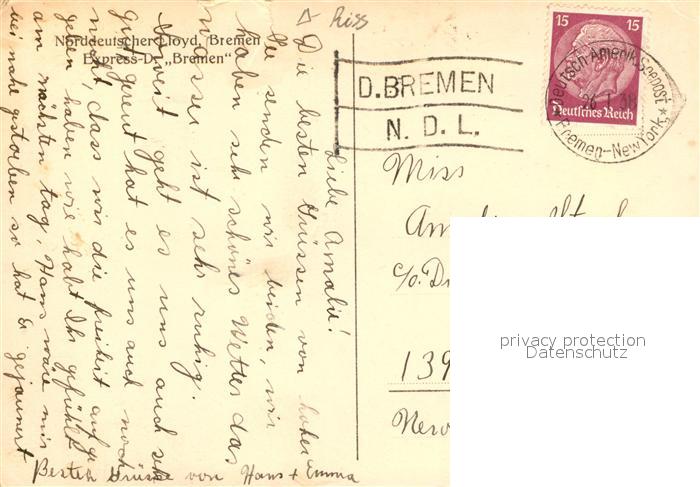 Riss
Norddeutscher Lloyd, Bremen
Express-D. „Bremen"
15 15
Deutsches Reich
Deutsch-Amerik. Seepost
Bremen-New York
D. BREMEN
N. D. L.
Liebe Amalie!
Die besten Grüssen von hoher
See senden wir beiden, wir
haben sehr schönes Wetter das
Wasser ist sehr ruhig.
Soweit geht es uns auch sehr
gut, gereut hat es uns auch noch
nicht, dass wir die Freiheit aufge
geben haben wie habt Ihr gefühlt
am nächsten tag, Hans wäre mir
bei nahe gestorben so hat Er gejammert
Besten Grüsse von Hans + Emma
Miss
c/o. Dr
139
New
privacy protection
Datenschutz